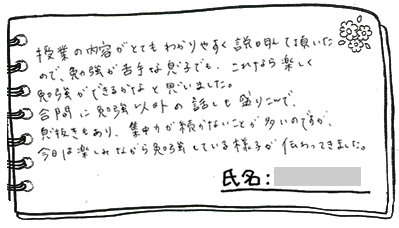 授業の内容がとてもわかりやすく説明して頂いた
ので、勉強が苦手な息子でも、これなら楽しく
勉強ができるかなと思いました。
合間に勉強以外の話しも盛りこんで、
息抜きもあり、集中力が続かないことが多いのですが、
今日は楽しみながら勉強している様子が伝わってきました。
氏名: